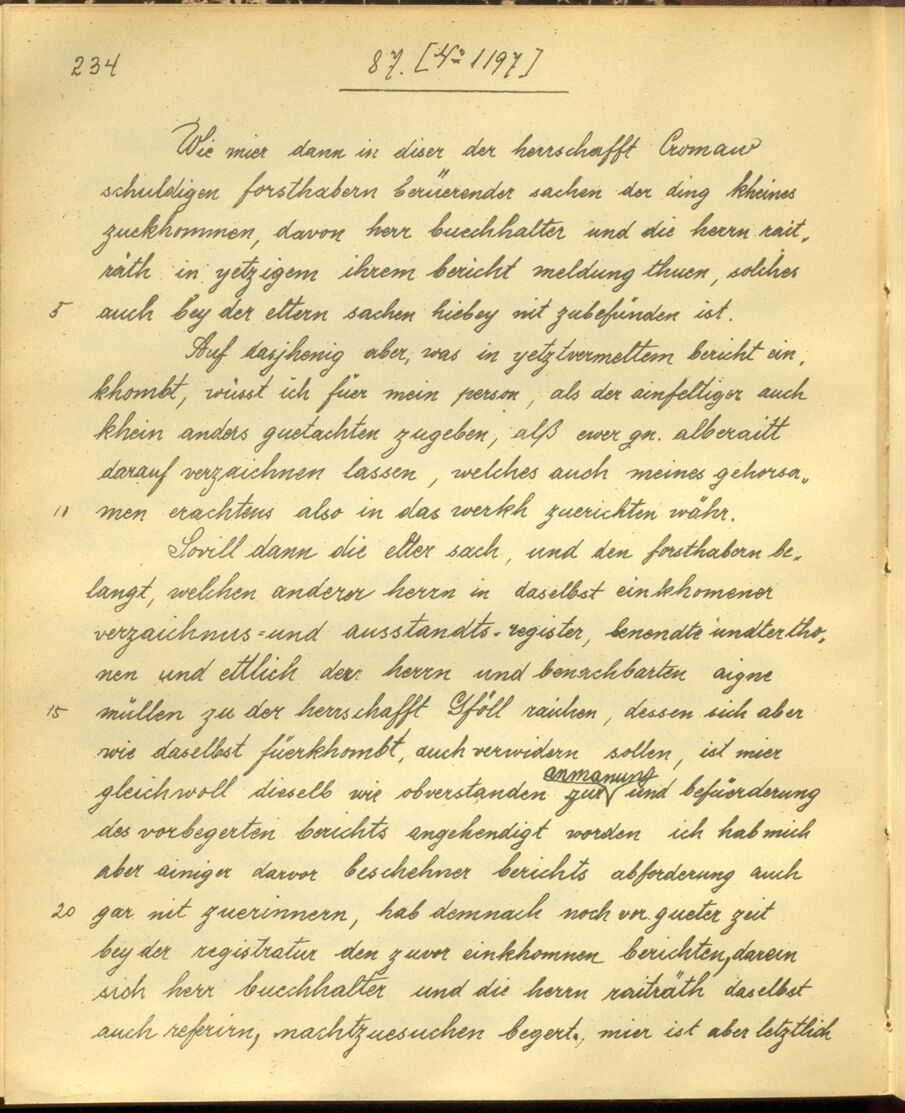 234
87. [No 1197]
Wie mier dann in diser der herrschafft Cromaw
schuldigen forsthabern berüerender sachen der ding kheines
zuekhommen, davon herr buechhalter und die herrn rait„
räth in yetzigem ihrem bericht meldung thuen, solches
5 auch bey der eltern sachen hiebey nit zubefünden ist.
Auf dasjhenig aber, was in yetztvermeltem bericht ein„
khombt, wüsst ich füer mein person, als der ainfeltiger auch
khein anders guetachten zugeben, alß ewer gn. alberaitt
darauf verzaichnen lassen, welches auch meines gehorsa„
10 men erachtens also in das werkh zuerichten währ.
Sovill dann die elter sach, und den forsthabern be„
langt, welchen anderer herrn in daselbst einkhomener
verzaichnus= und ausstandts-register, benendte undtertho„
nen und ettlich der herrn und benachbarten aigne
15 müllen zu der herrschafft Gföll raichen, dessen sich aber
wie daselbst füerkhombt, auch verwidern sollen, ist mier
gleichwoll dieselb wie obverstanden zur anmanung und befüerderung
des vorbegerten berichts angehendigt worden ich hab mich
aber ainiger darvor beschehner berichts abforderung auch
20 gar nit zuerinnern, hab demnach noch vor gueter zeit
bey der registratur den zuvor einkhomnen berichten, darein
sich herr buechhalter und die herrn raiträth daselbst
auch referirn, nachtzuesuchen begert, mier ist aber letztlich